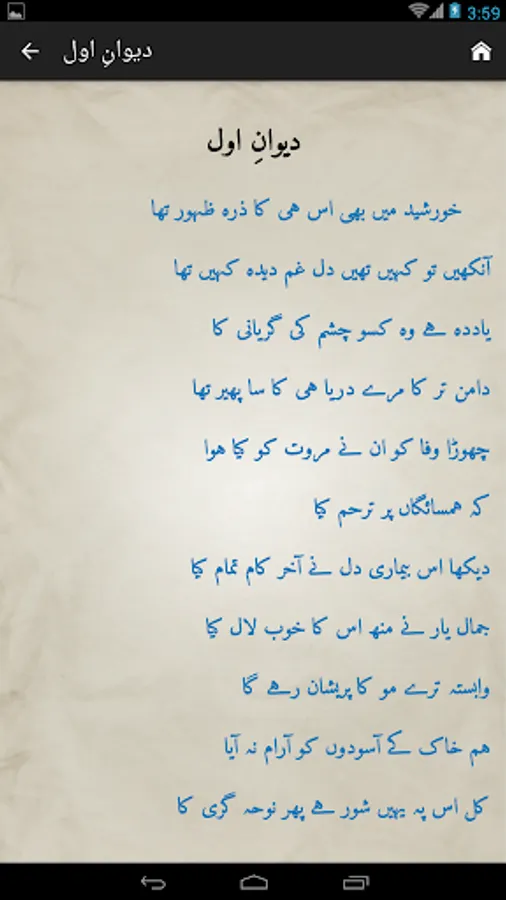 3:59
دیوانِ اول
دیوانِ اول
خورشید میں بھی اس ہی کا ذرہ ظہور تھا
آنکھیں تو کہیں تھیں دل غم دیدہ کہیں تھا
یاددہ ہے وہ کسو چشم کی گریانی کا
دامن تر کا مرے دریا ہی کا سا پھیر تھا
چھوڑا وفا کو ان نے مروت کو کیا ہوا
کہ ہمسائگاں پر ترحم کیا
دیکھا اس بیماری دل نے آخر کام تمام کیا
جمال یار نے منھ اس کا خوب لال کیا
وابستہ ترے مو کا پریشان رہے گا
ہم خاک کے آسودوں کو آرام نہ آیا
کل اس پہ یہیں شور ہے پھر نوحہ گری کا